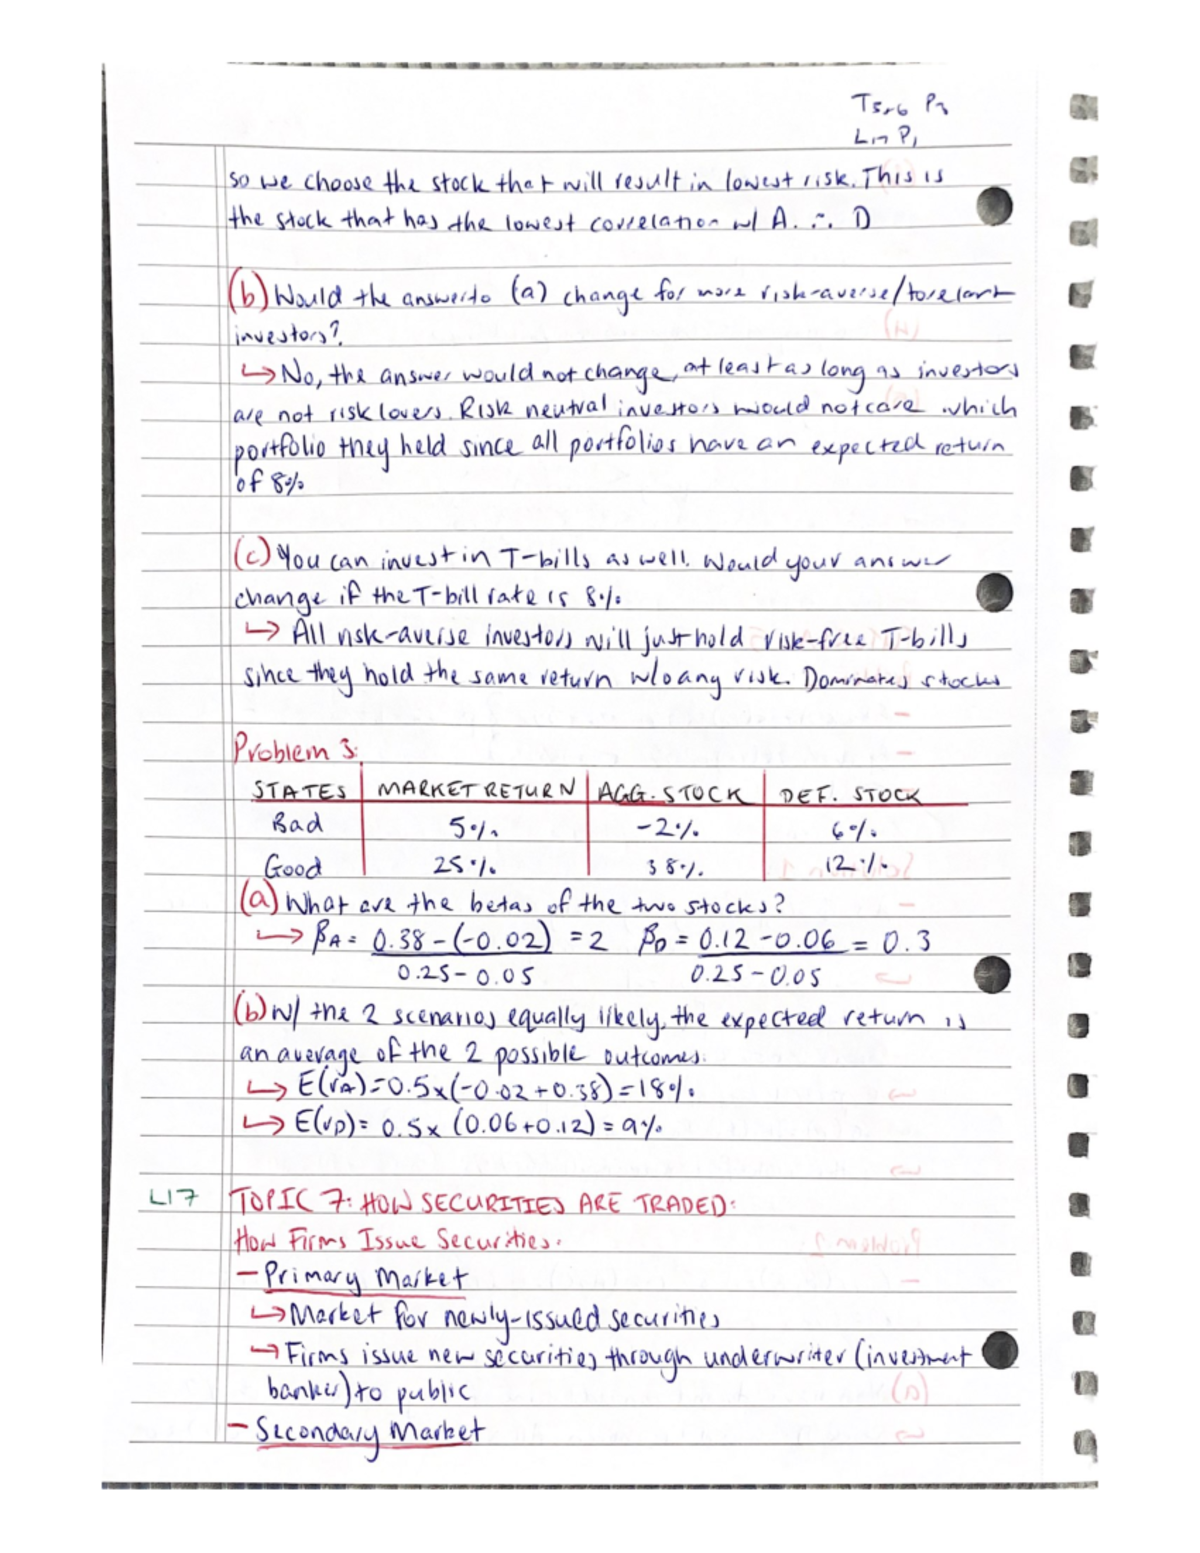 T5+6 P3
L17 P1
so we choose the stock that will result in lowest risk. This is
the stock that has the lowest correlation w/ A. ∴ D
(b) Would the answer to (a) change for more risk-averse/tolerant
investors?
↳ No, the answer would not change, at least as long as investors
are not risk lovers. Risk neutral investors would not care which
portfolio they held since all portfolios have an expected return
of 8%
(c) You can invest in T-bills as well. Would your answer
change if the T-bill rate is 8%
↳ All risk-averse investors will just hold risk-free T-bills
since they hold the same return w/o any risk. Dominates stocks
Problem 3:
STATES MARKET RETURN AGG. STOCK DEF. STOCK
Bad 5% -2% 6%
Good 25% 38% 12%
(a) What are the betas of the two stocks?
↳ βA = 0.38-(-0.02) = 2 βD = 0.12-0.06 = 0.3
0.25-0.05 0.25-0.05
(b) w/ the 2 scenarios equally likely, the expected return is
an average of the 2 possible outcomes:
↳ E(rA)=0.5x(-0.02+0.38)=18%
↳ E(rD)= 0.5x (0.06+0.12)=9%
L17 TOPIC 7: HOW SECURITIES ARE TRADED:
How Firms Issue Securities:
- Primary Market
↳ Market for newly-issued securities
↳ Firms issue new securities through underwriter (investment
banker) to public
- Secondary Market